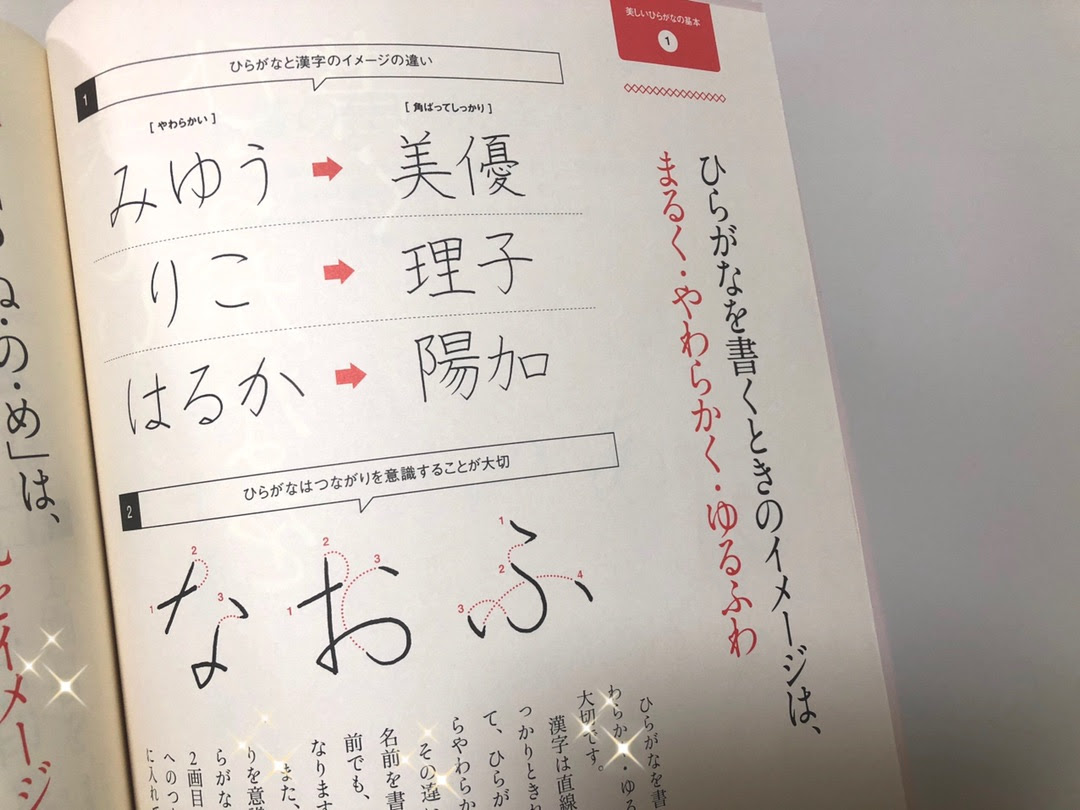 美しいひらがなの基本
1
ひらがなを書くときのイメージは、
まるく・やわらかく・ゆるふわ
1
ひらがなと漢字のイメージの違い
[ やわらかい ]
[ 角ばってしっかり ]
みゆう
美優
りこ
理子
はるか
陽加
2
ひらがなはつながりを意識することが大切
な
1
2
3
お
1
2
3
ふ
1
2
3
4
ひらがなを書
わらか
・ゆる
大切です。
漢字は直線
っかりときれ
て、ひらが
らやわらか
その違い
名前を書
前でも、
なります
また、
りを意識
らがな
2画目
へのつ
に入れ
ね・の・め」は、
イメージ